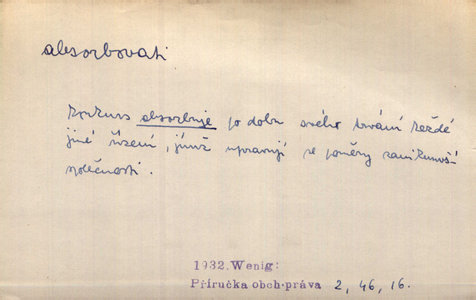 absorbovati
konkurs absorbuje po dobu svého trvání každé
jiné řízení, jímž upravují se poměry zaniknuvší
společnosti.
1932. Wenig:
Příručka obch. práva 2, 46, 16.